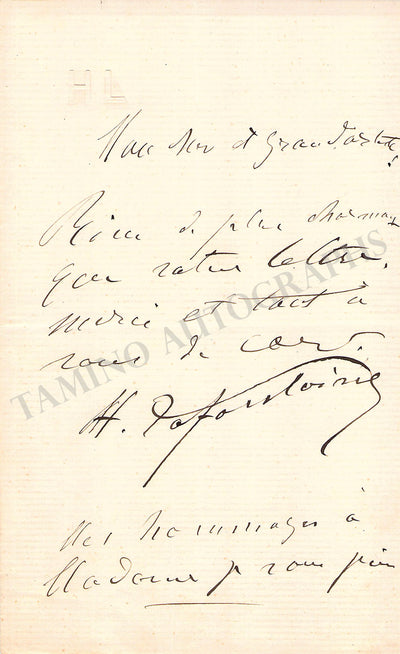 HL
Mon cher et grand artiste!
Rien de plus charmant
que votre lettre.
merci et tout à
vous de cœur.
H. Lafontaine
Mes hommages à
Madame je vous prie
TAMINO AUTOGRAPHS